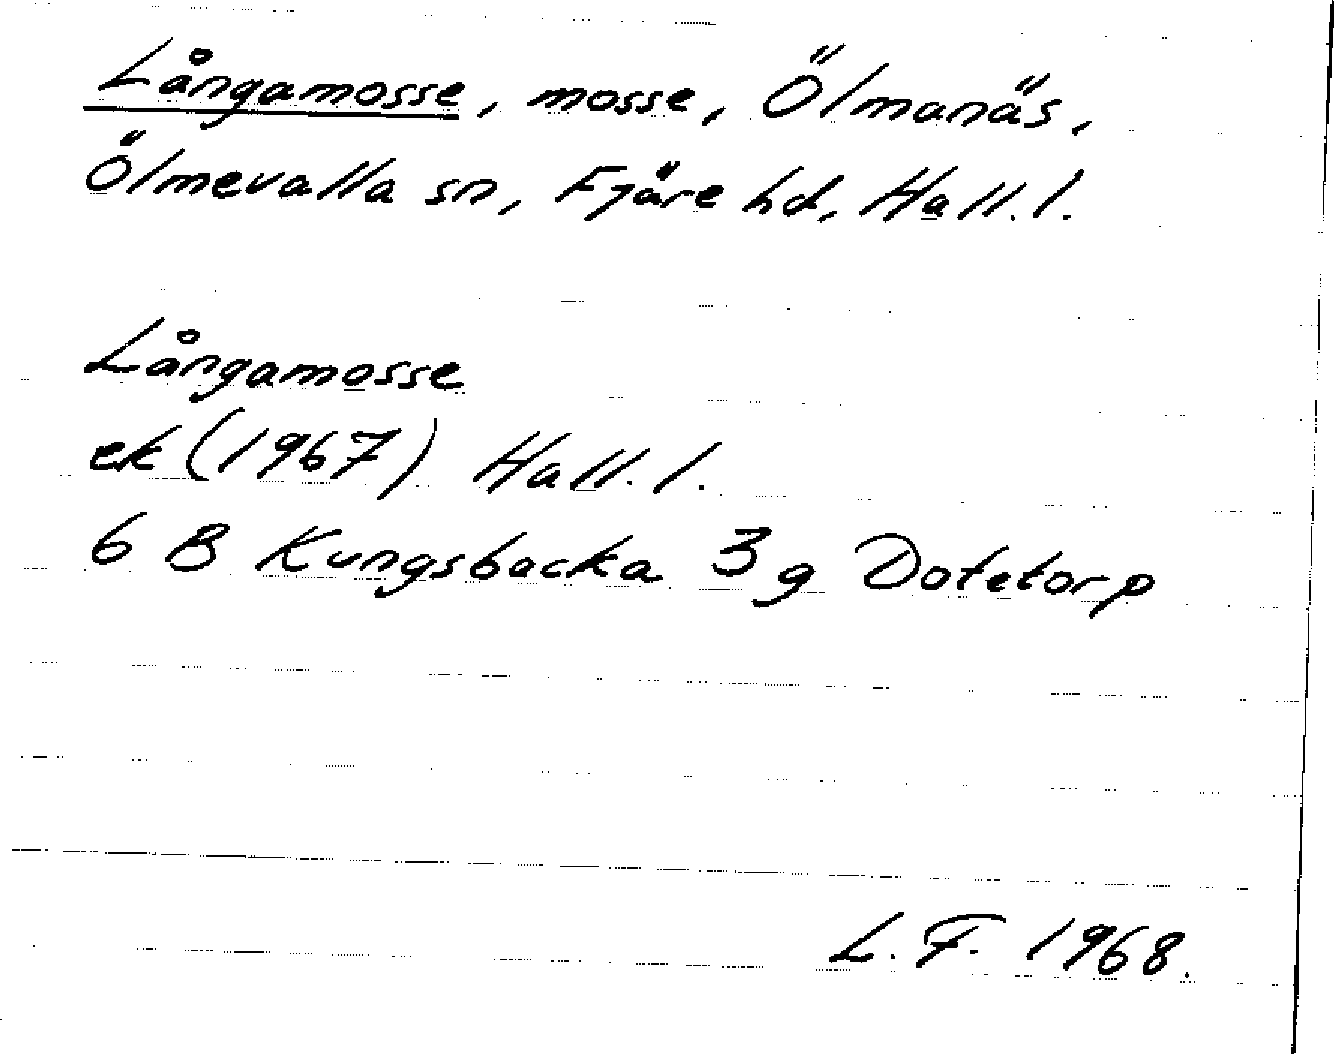 Långamosse, mosse, Ölmanäs,
Ölmevalla sn, Fjäre hd, Hall.l.
Långamosse
ek (1967) Hall.l.
6 B Kungsbacka 3 g Dotetorp
L.F. 1968.